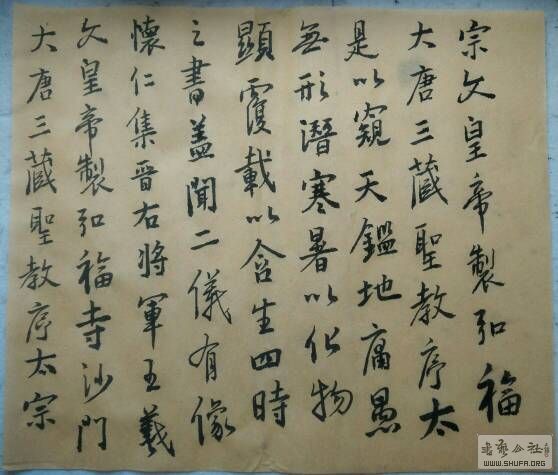 大唐三藏聖教序太宗
文皇帝製弘福寺沙門
懷仁集晉右將軍王羲
之書蓋聞二儀有像
顯覆載以含生四時
無形潛寒暑以化物
是以窺天鑑地庸愚
大唐三藏聖教序太
宗文皇帝製弘福
書藝公社
WWW.SHUFA.ORG